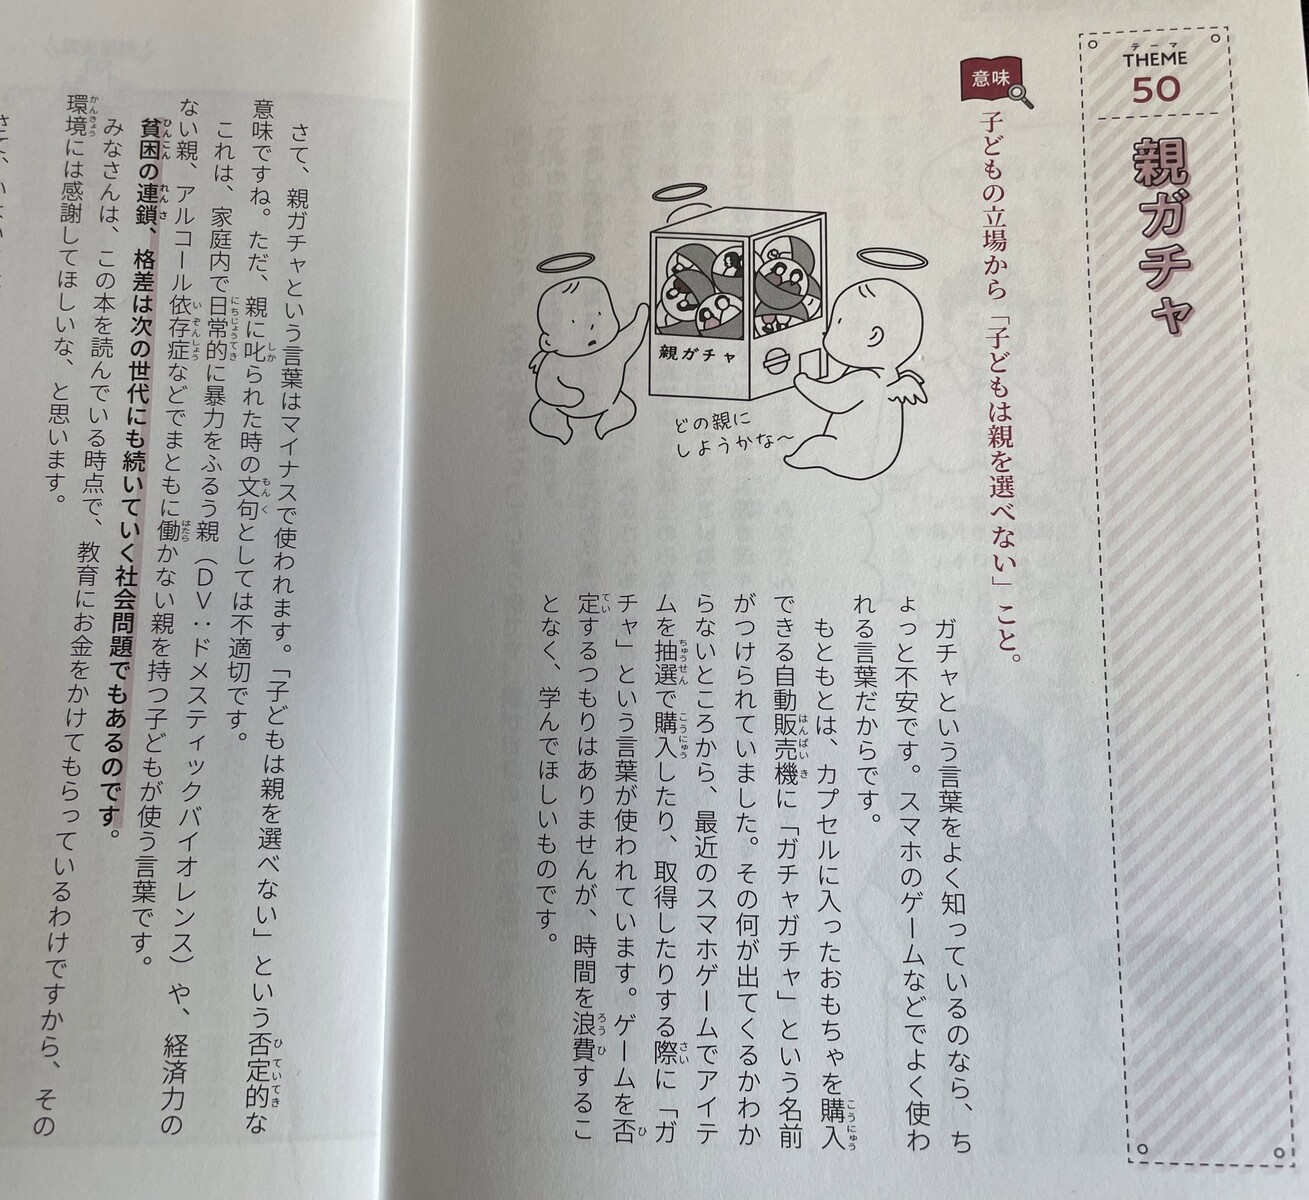 テーマ
THEME
50
親ガチャ
意味
子どもの立場から「子どもは親を選べない」こと。
親ガチャ
どの親に
しようかな〜
ガチャという言葉をよく知っているのなら、ち
ょっと不安です。スマホのゲームなどでよく使わ
れる言葉だからです。
もともとは、カプセルに入ったおもちゃを購入
できる自動販売機に「ガチャガチャ」という名前
がつけられていました。その何が出てくるかわか
らないところから、最近のスマホゲームでアイテ
ムを抽選で購入したり、取得したりする際に「ガ
チャ」という言葉が使われています。ゲームを否
定するつもりはありませんが、時間を浪費するこ
となく、学んでほしいものです。
さて、親ガチャという言葉はマイナスで使われます。「子どもは親を選べない」という否定的な
意味ですね。ただ、親に叱られた時の文句としては不適切です。
これは、家庭内で日常的に暴力をふるう親（DV：ドメスティックバイオレンス）や、経済力の
ない親、アルコール依存症などでまともに働かない親を持つ子どもが使う言葉です。
貧困の連鎖、格差は次の世代にも続いていく社会問題でもあるのです。
みなさんは、この本を読んでいる時点で、教育にお金をかけてもらっているわけですから、その
環境には感謝してほしいな、と思います。
さて、